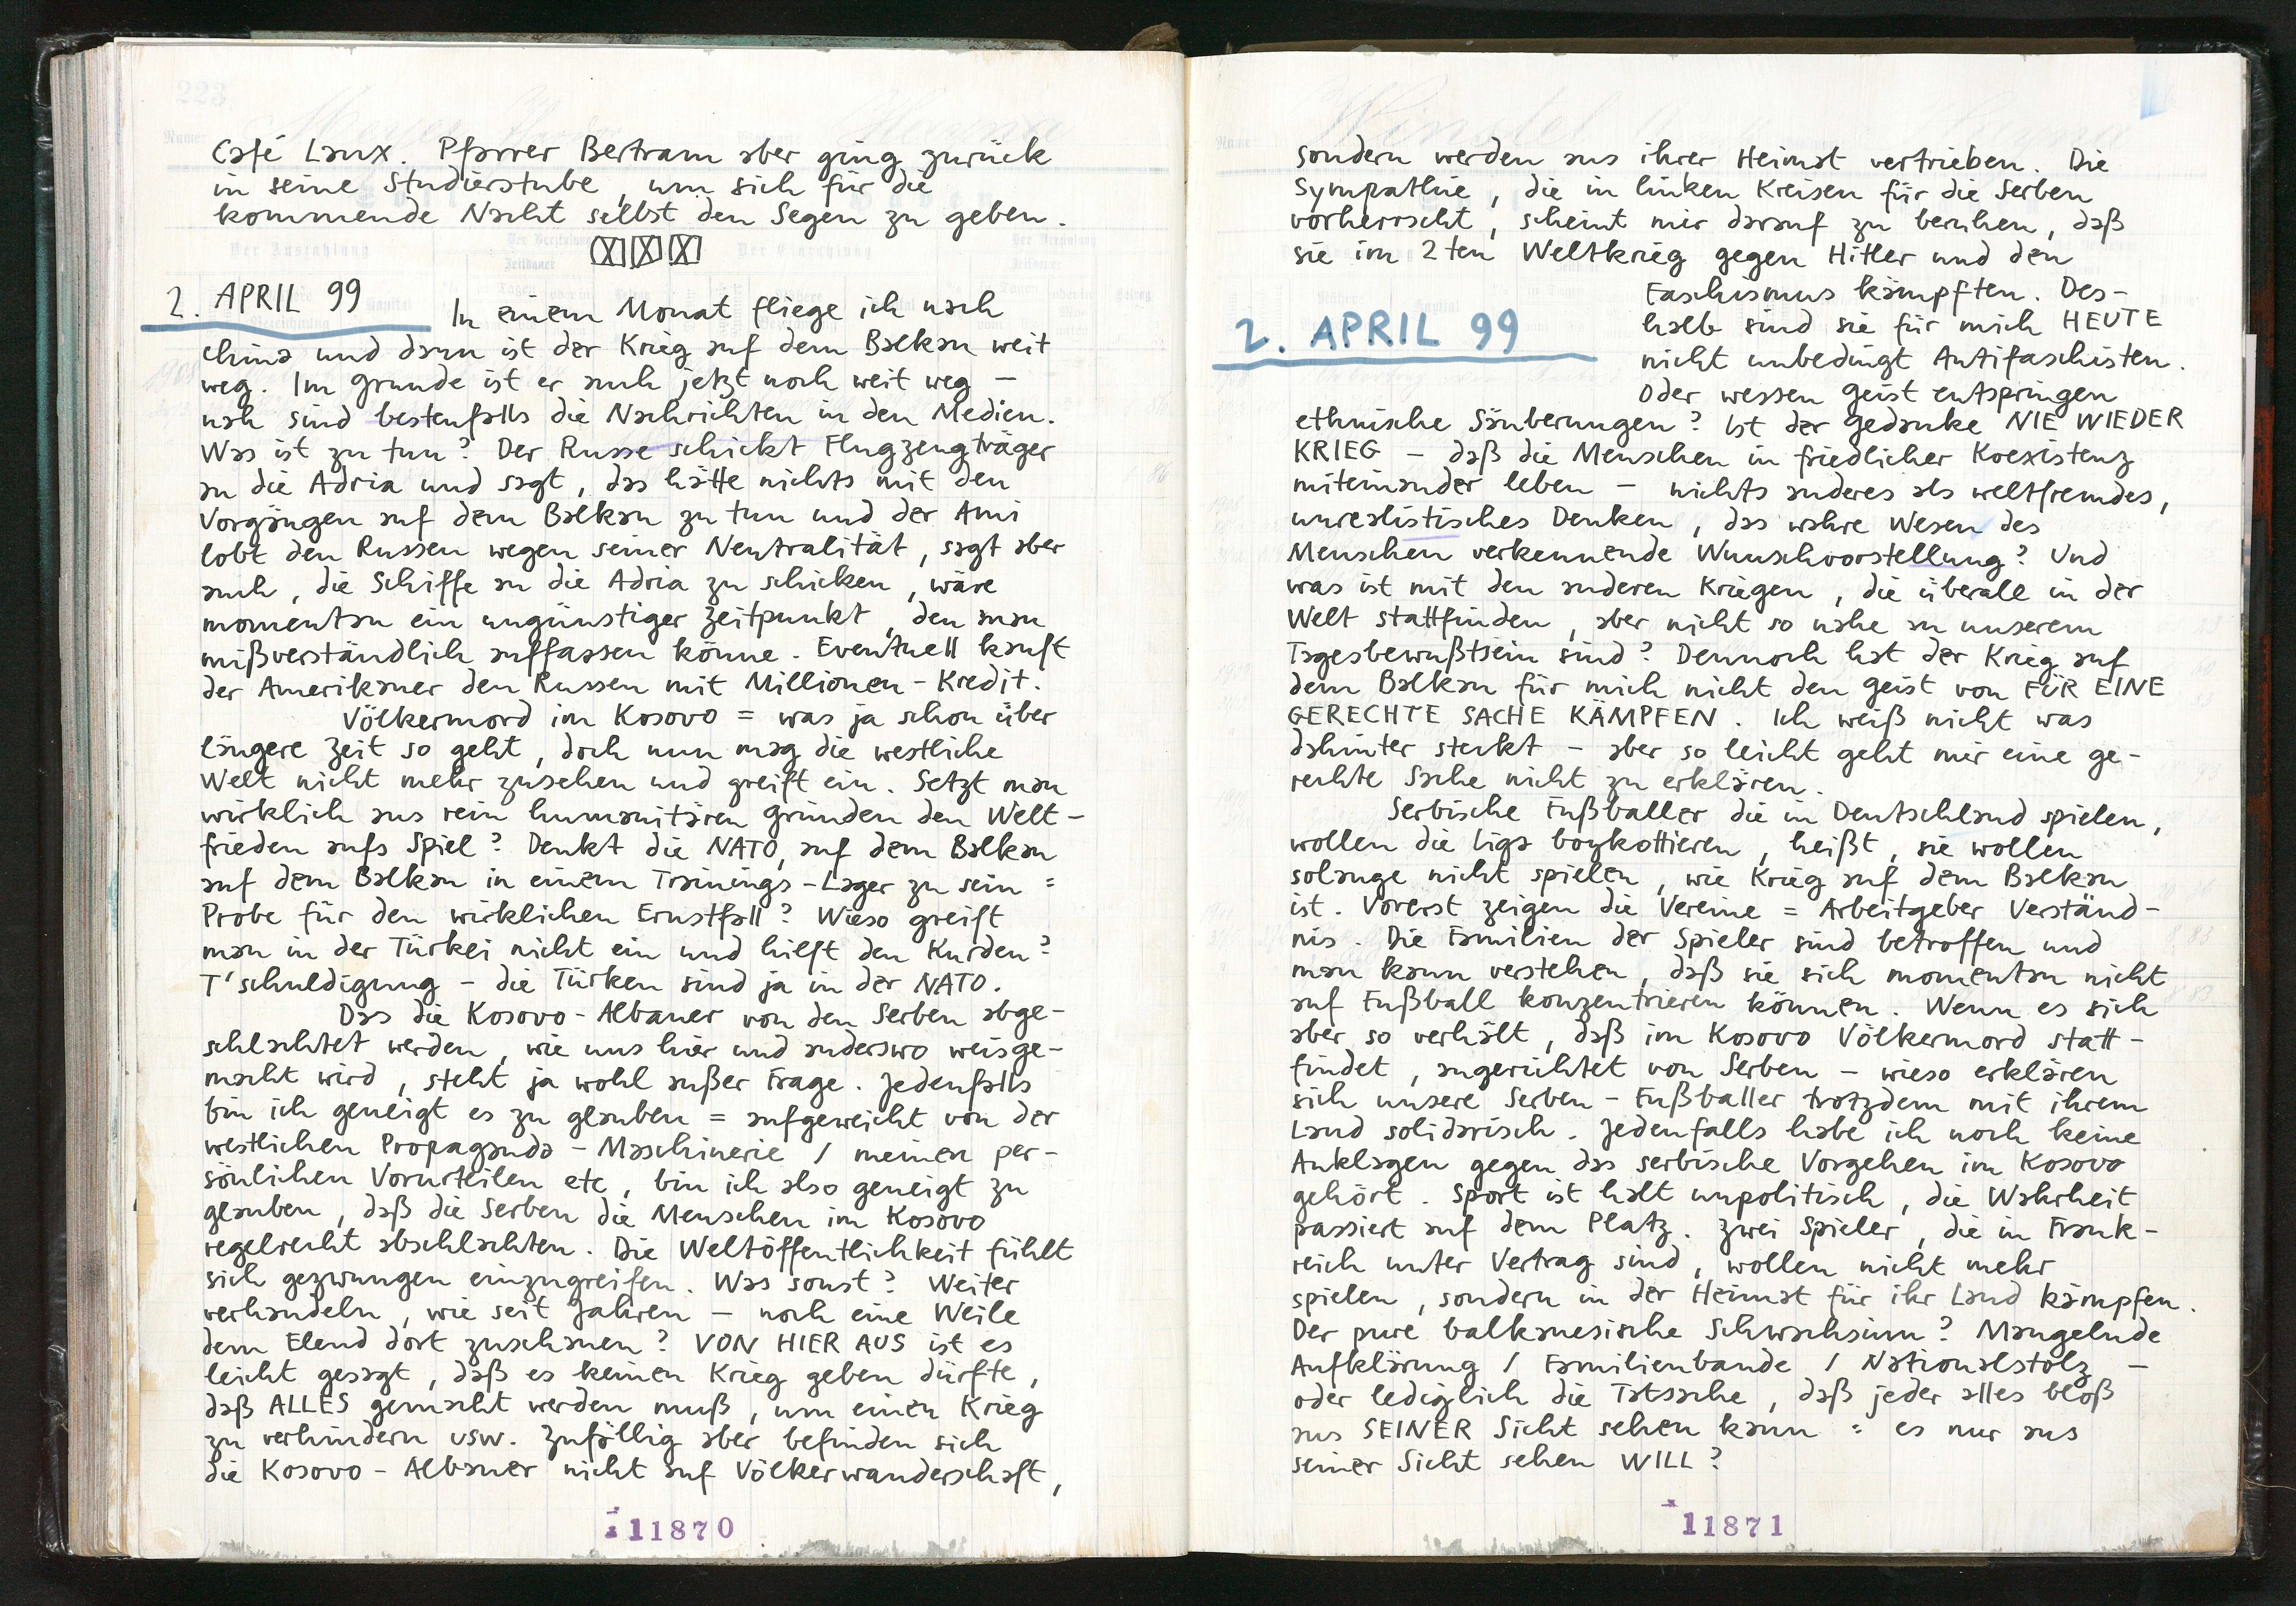 Café Laux. Pfarrer Bertram aber ging zurück
in seine Studierstube, um sich für die
kommende Nacht selbst den Segen zu geben.
2. APRIL 99
In einem Monat fliege ich nach
China und dann ist der Krieg auf dem Balkan weit
weg. Im Grunde ist er auch jetzt noch weit weg –
nah sind bestenfalls die Nachrichten in den Medien.
Was ist zu tun? Der Russe schickt Flugzeugträger
an die Adria und sagt, das hätte nichts mit den
Vorgängen auf dem Balkan zu tun und der Ami
lobt den Russen wegen seiner Neutralität, sagt aber
auch, die Schiffe an die Adria zu schicken, wäre
momentan ein ungünstiger Zeitpunkt, den man
mißverständlich auffassen könne. Eventuell kauft
der Amerikaner den Russen mit Millionen-Kredit.
Völkermord im Kosovo = was ja schon über
längere Zeit so geht, doch nun mag die westliche
Welt nicht mehr zusehen und greift ein. Setzt man
wirklich aus rein humanitären Gründen den Welt-
frieden aufs Spiel? Denkt die NATO, auf dem Balkan
auf dem Balkan in einem Trainings-Lager zu sein =
Probe für den wirklichen Ernstfall? Wieso greift
man in der Türkei nicht ein und hilft den Kurden?
T'schuldigung – die Türken sind ja in der NATO.
Das die Kosovo-Albaner von den Serben abge-
schlachtet werden, wie uns hier und anderswo weisge-
macht wird, steht ja wohl außer Frage. Jedenfalls
bin ich geneigt es zu glauben = aufgeweicht von der
westlichen Propaganda-Maschinerie / meinen per-
sönlichen Vorurteilen etc, bin ich also geneigt zu
glauben, daß die Serben die Menschen im Kosovo
regelrecht abschlachten. Die Weltöffentlichkeit fühlt
sich gezwungen einzugreifen. Was sonst? Weiter
verhandeln, wie seit Jahren – noch eine Weile
dem Elend dort zuschauen? VON HIER AUS ist es
leicht gesagt, daß es keinen Krieg geben dürfte,
daß ALLES gemacht werden muß, um einen Krieg
zu verhindern usw. Zufällig aber befinden sich
die Kosovo-Albaner nicht auf Völkerwanderschaft,
11870
sondern werden aus ihrer Heimat vertrieben. Die
Sympathie, die in linken Kreisen für die Serben
vorherrscht, scheint mir darauf zu beruhen, daß
sie im 2ten Weltkrieg gegen Hitler und den
Faschismus kämpften. Des-
2. APRIL 99
halb sind sie für mich HEUTE
nicht unbedingt Antifaschisten.
Oder wessen Geist entspringen
ethnische Säuberungen? Ist der Gedanke NIE WIEDER
KRIEG – daß die Menschen in friedlicher Koexistenz
miteinander leben – nichts anderes als weltfremdes,
unrealistisches Denken, das wahre Wesen des
Menschen verkennende Wunschvorstellung? Und
was ist mit den anderen Kriegen, die überall in der
Welt stattfinden, aber nicht so nahe an unserem
Tagesbewußtsein sind? Dennoch hat der Krieg auf
dem Balkan für mich nicht den Geist von FÜR EINE
GERECHTE SACHE KÄMPFEN. Ich weiß nicht was
dahinter steckt – aber so leicht geht mir eine ge-
rechte Sache nicht zu erklären.
Serbische Fußballer die in Deutschland spielen,
wollen die Liga boykottieren, heißt, sie wollen
solange nicht spielen, wie Krieg auf dem Balkan
ist. Vorerst zeigen die Vereine = Arbeitgeber Verständ-
nis. Die Familien der Spieler sind betroffen und
man kann verstehen, daß sie sich momentan nicht
auf Fußball konzentrieren können. Wenn es sich
aber so verhält, daß im Kosovo Völkermord statt-
findet, angerichtet von Serben – wieso erklären
sich unsere Serben-Fußballer trotzdem mit ihrem
Land solidarisch. Jedenfalls habe ich noch keine
Anklagen gegen das serbische Vorgehen im Kosovo
gehört. Sport ist halt unpolitisch, die Wahrheit
passiert auf dem Platz. Zwei Spieler, die in Frank-
reich unter Vertrag sind, wollen nicht mehr
spielen, sondern in der Heimat für ihr Land kämpfen.
Der pure balkanesische Schwachsinn? Mangelnde
Aufklärung / Familienbande / Nationalstolz –
oder lediglich die Tatsache, daß jeder alles bloß
aus SEINER Sicht sehen kann = es nur aus
seiner Sicht sehen WILL?
11871